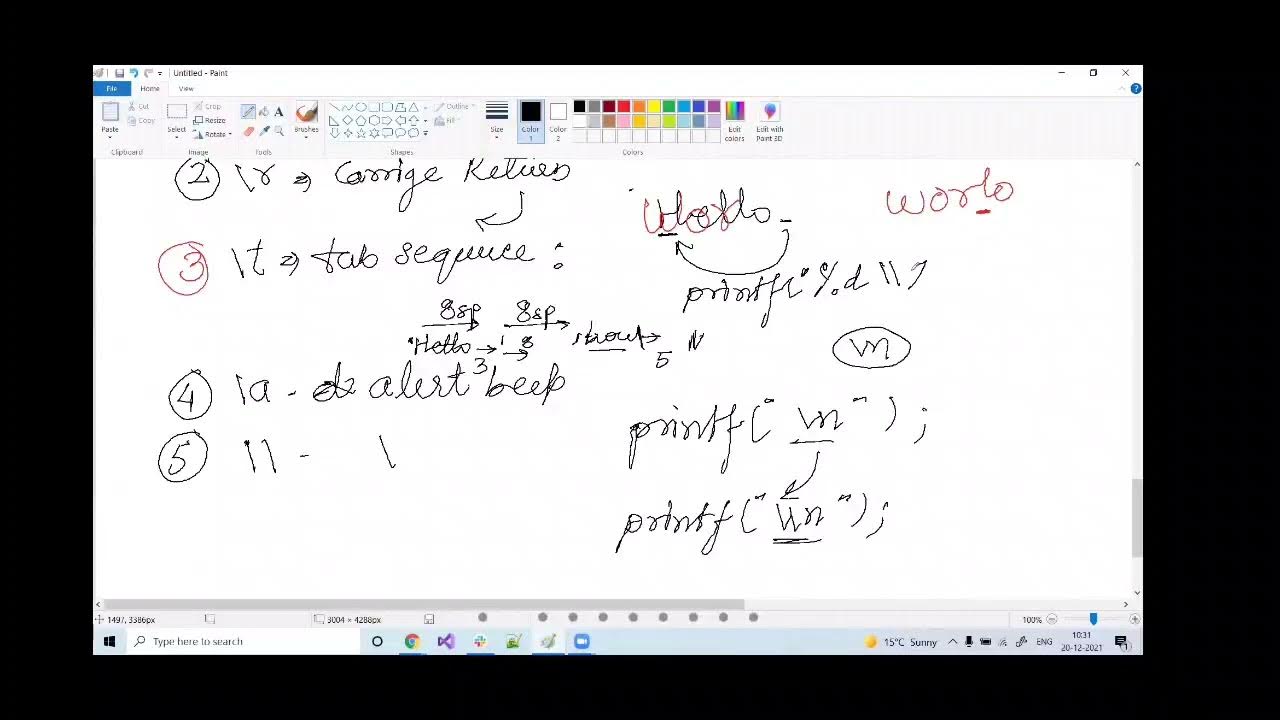 Untitled - Paint
File Home View
Cut
Copy
Paste
Clipboard
Crop
Resize
Rotate
Select
Image
Tools
Brushes
Outline
Fill
Shapes
Size
Color 1
Color 2
Edit colors
Edit with Paint 3D
Colors
② \r ⇒ Carrige
worlo
Hello_
③ \t ⇒ tab sequence :
printf("%d \\
8sp 8sp
Hello → 8
3 5
\n
④ \a - alert beep
printf(" \n ");
⑤ \\ - \
printf(" \\n ");
1497, 3386px
3004 × 4288px
100%
Type here to search
15°C Sunny
ENG
10:31
20-12-2021